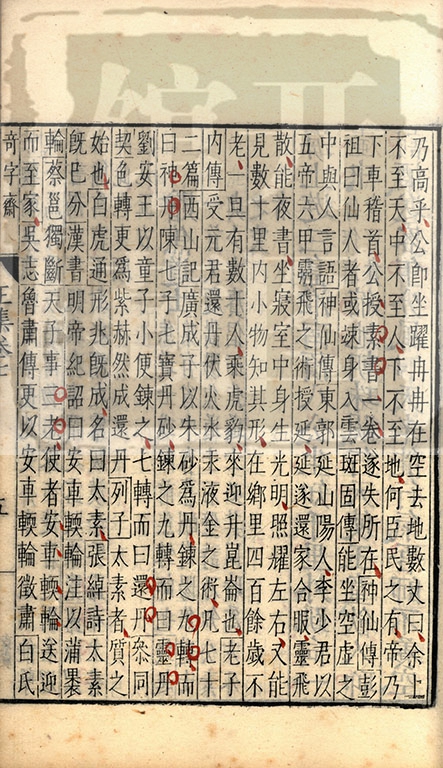 乃高乎公卽坐躍冉冉在空去地數丈曰余上
不至天中不至人下不至地何臣民之有帝乃
下車稽首公授素書一卷遂失所在神仙傳彭
祖曰仙人者或竦身入雲斑固傳能坐空虛之
中與人言語神仙傳東郭延山陽人李少君以
五帝六甲靈飛之術授延延遂還家合服靈飛
散能夜書坐寢室中身生光明照耀左右又能
見數十里內小物知其形在鄉里四百餘歲不
老一旦有數十人乘虎豹來迎升崑崙也老子
內傳受元君還丹伏火水汞液金之術凡七十
二篇西山記廣成子以朱砂爲丹鍊之九轉而
曰神丹陳七子老寶丹砂鍊之九轉而曰靈丹
劉安王以童子小便鍊之七轉而曰還丹叅同
契色轉更爲紫赫然成還丹列子太素者質之
始也白虎通形兆旣成名曰太素張綽詩太素
旣已分漢書明帝紀詔曰安車輭輪注以蒲褁
輪蔡邕獨斷天子事三老使者安車輭輪送迎
而至家吳志魯肅傳更以安車輭輪徵肅白氏
奇字齋
五